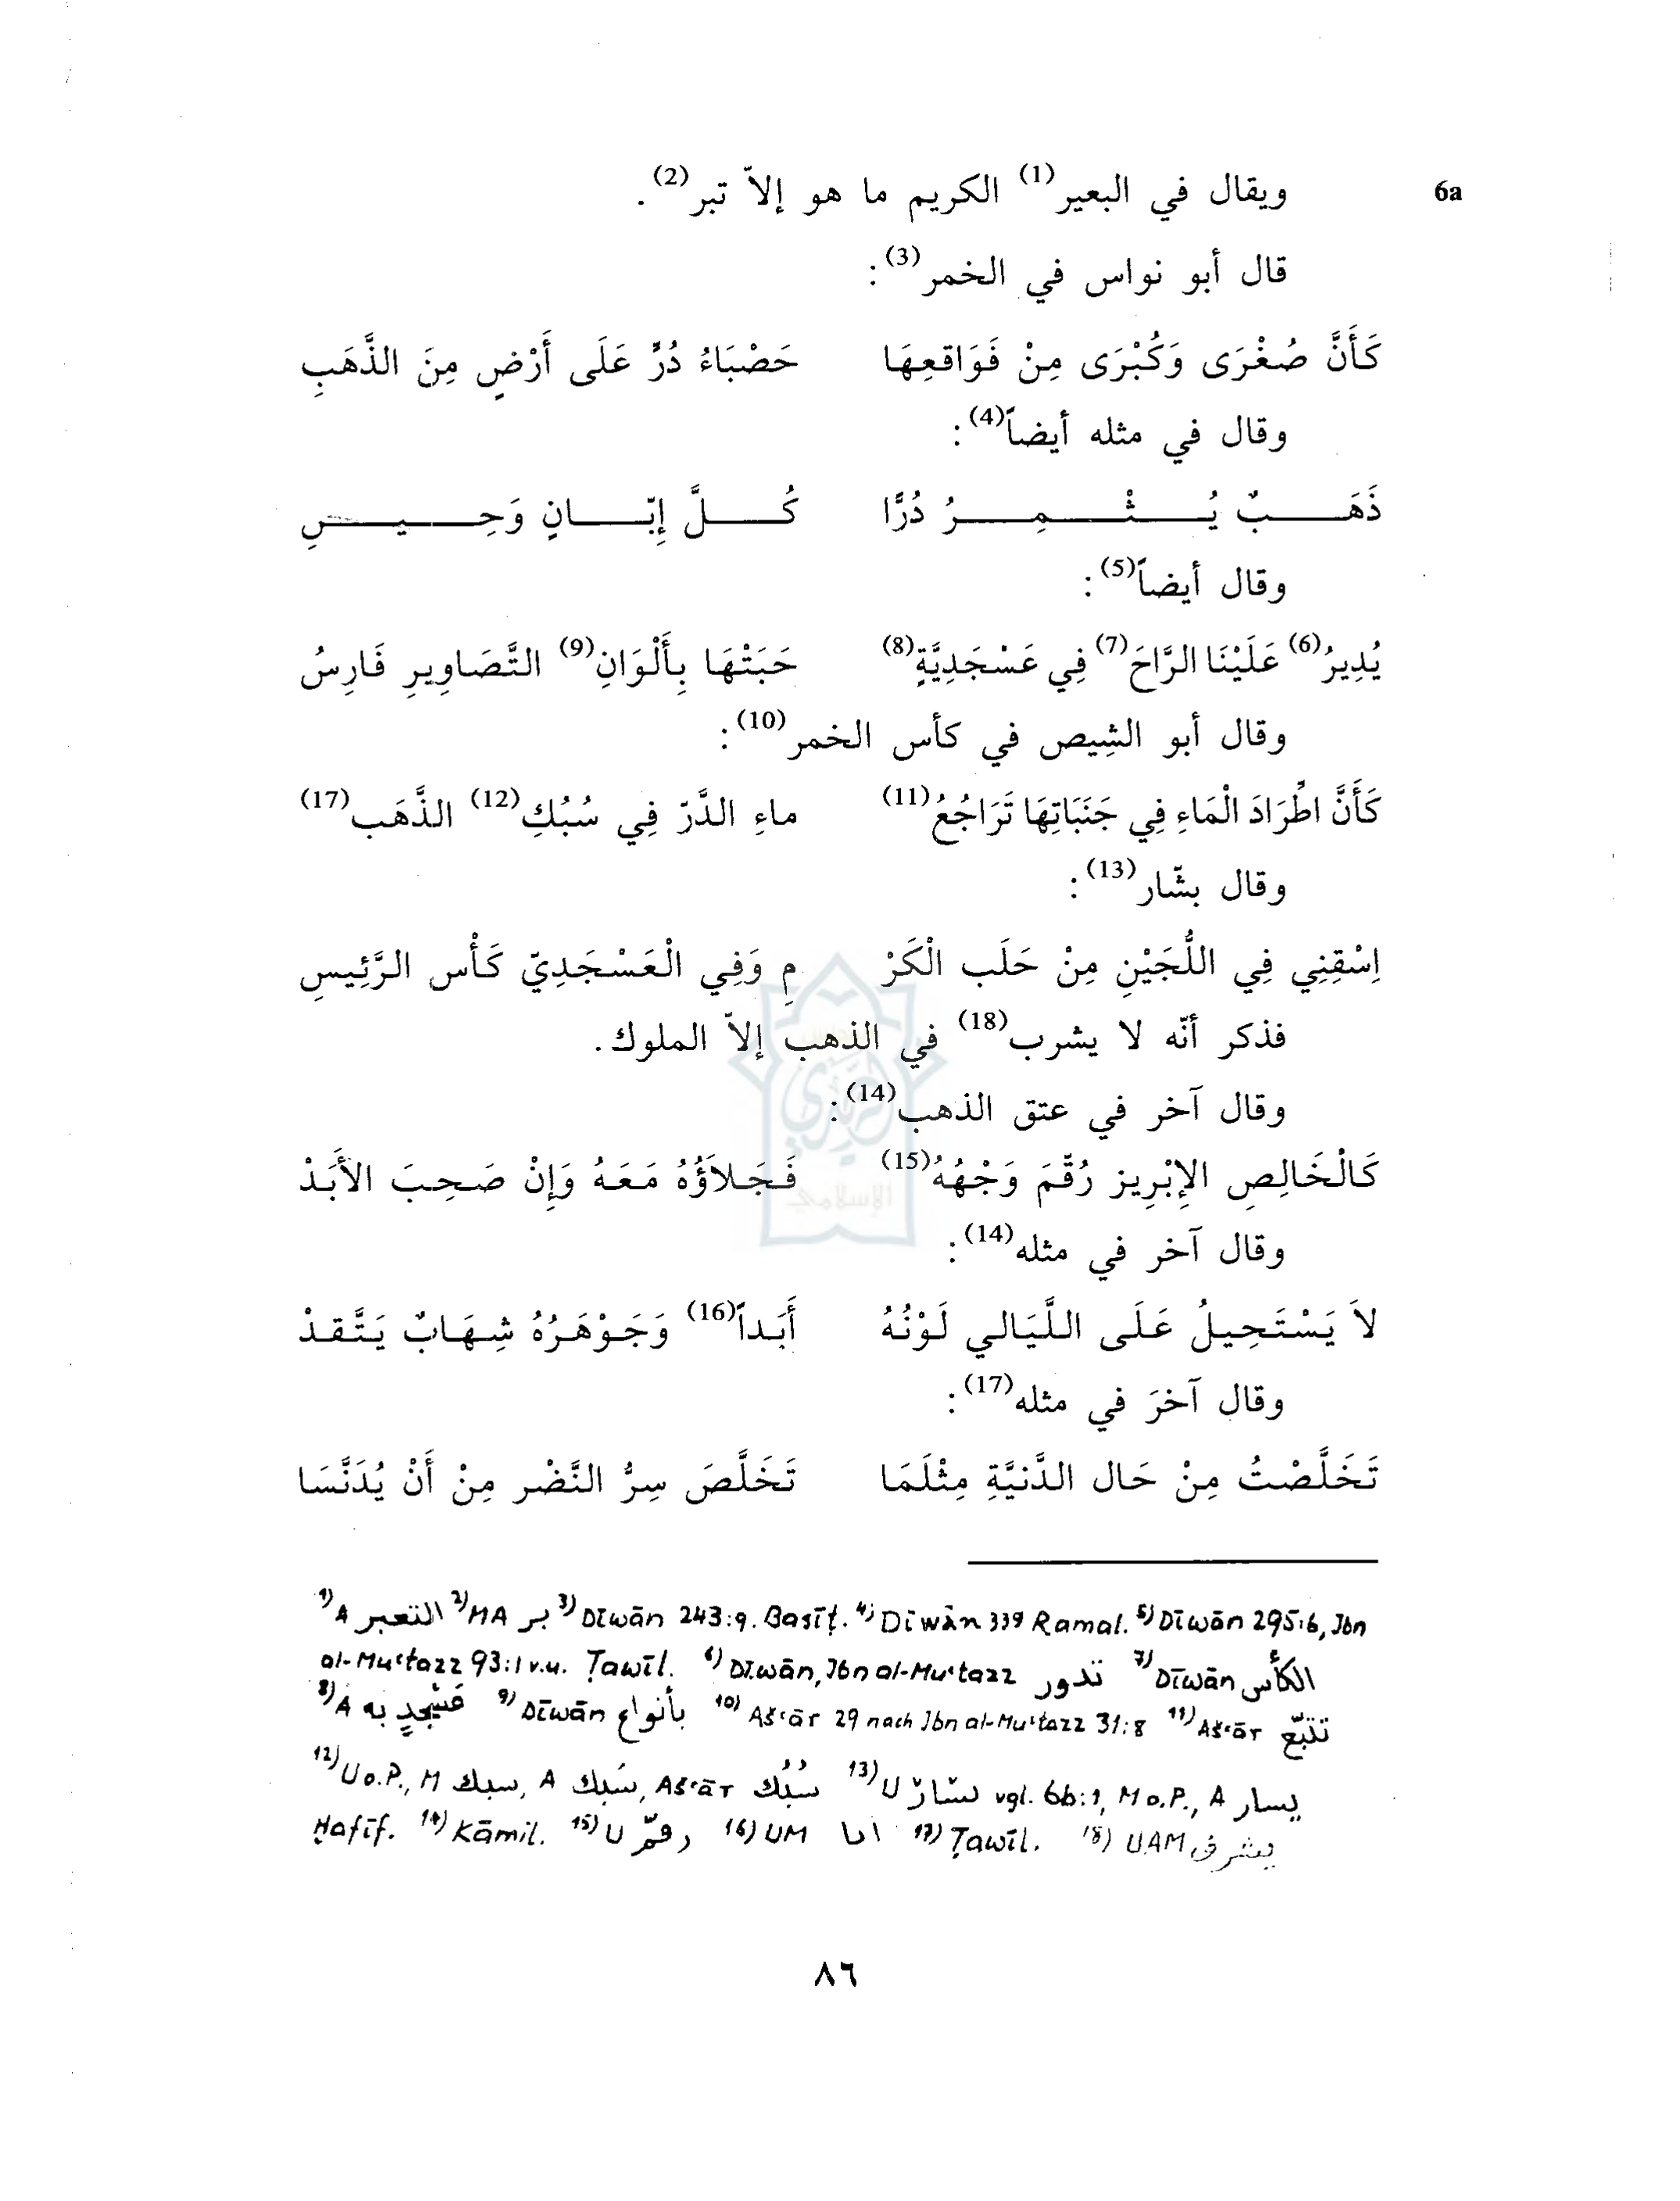 6a
ويقال في البعير(1) الكريم ما هو إلاّ تبر(2).
قال أبو نواس في الخمر(3):
كَأَنَّ صُغْرَى وَكُبْرَى مِنْ فَوَاقعِهَا حَصْبَاءُ دُرٍّ عَلَى أَرْضٍ مِنَ الذَّهَبِ
وقال في مثله أيضاً(4):
ذَهَبٌ يُثْمِرُ دُرًّا كُلَّ إِبّانٍ وَحِيسِ
وقال أيضاً(5):
يُدِيرُ(6) عَلَيْنَا الرَّاحَ(7) فِي عَسْجَدِيَّةٍ(8) حَبَتْهَا بِأَلْوَانِ(9) التَّصَاوِيرِ فَارِسُ
وقال أبو الشِيص في كأس الخمر(10):
كَأَنَّ اطِّرَادَ الْمَاءِ فِي جَنَبَاتِهَا تَرَاجُعُ(11) ماءِ الدَّرّ فِي سُبُكِ(12) الذَّهَب(17)
وقال بشّار(13):
اِسْقِنِي فِي اللُّجَيْنِ مِنْ حَلَب الْكَرْ مِ وَفِي الْعَسْجَدِيّ كَأْس الرَّئِيسِ
فذكر أنّه لا يشرب(18) في الذهب إلاّ الملوك.
وقال آخر في عتق الذهب(14):
كَالْخَالِصِ الإِبْرِيز رُقِّمَ وَجْهُهُ(15) فَجَلاَؤُهُ مَعَهُ وَإِنْ صَحِبَ الأَبَدْ
وقال آخر في مثله(14):
لاَ يَسْتَحِيلُ عَلَى اللَّيَالي لَوْنُهُ أَبَداً(16) وَجَوْهَرُهُ شِهَابٌ يَتَّقدْ
وقال آخرَ في مثله(17):
تَخَلَّصْتُ مِنْ حَال الدَّنيَّةِ مِثْلَمَا تَخَلَّصَ سِرُّ النَّضْر مِنْ أَنْ يُدَنَّسَا
1) A التعبر 2) MA بر 3) Dīwān 243:9. Basīṭ. 4) Dīwān 339 Ramal. 5) Dīwān 295:6, Ibn
al-Muʿtazz 93:1 v.u. Ṭawīl. 6) Dīwān, Ibn al-Muʿtazz تدور 7) Dīwān الكأس
8) A به 9) Dīwān بأنواع 10) Ašʿār 29 nach Ibn al-Muʿtazz 31:8 11) Ašʿār تتبّع
12) U o.P., M سبك, A سَبك, Ašʿār سُبُك 13) U vgl. 6b:1, M o.P., A يسار
Ḫafīf. 14) Kāmil. 15) U رقمّ 16) UM 17) Ṭawīl. 18) UAM
٨٦